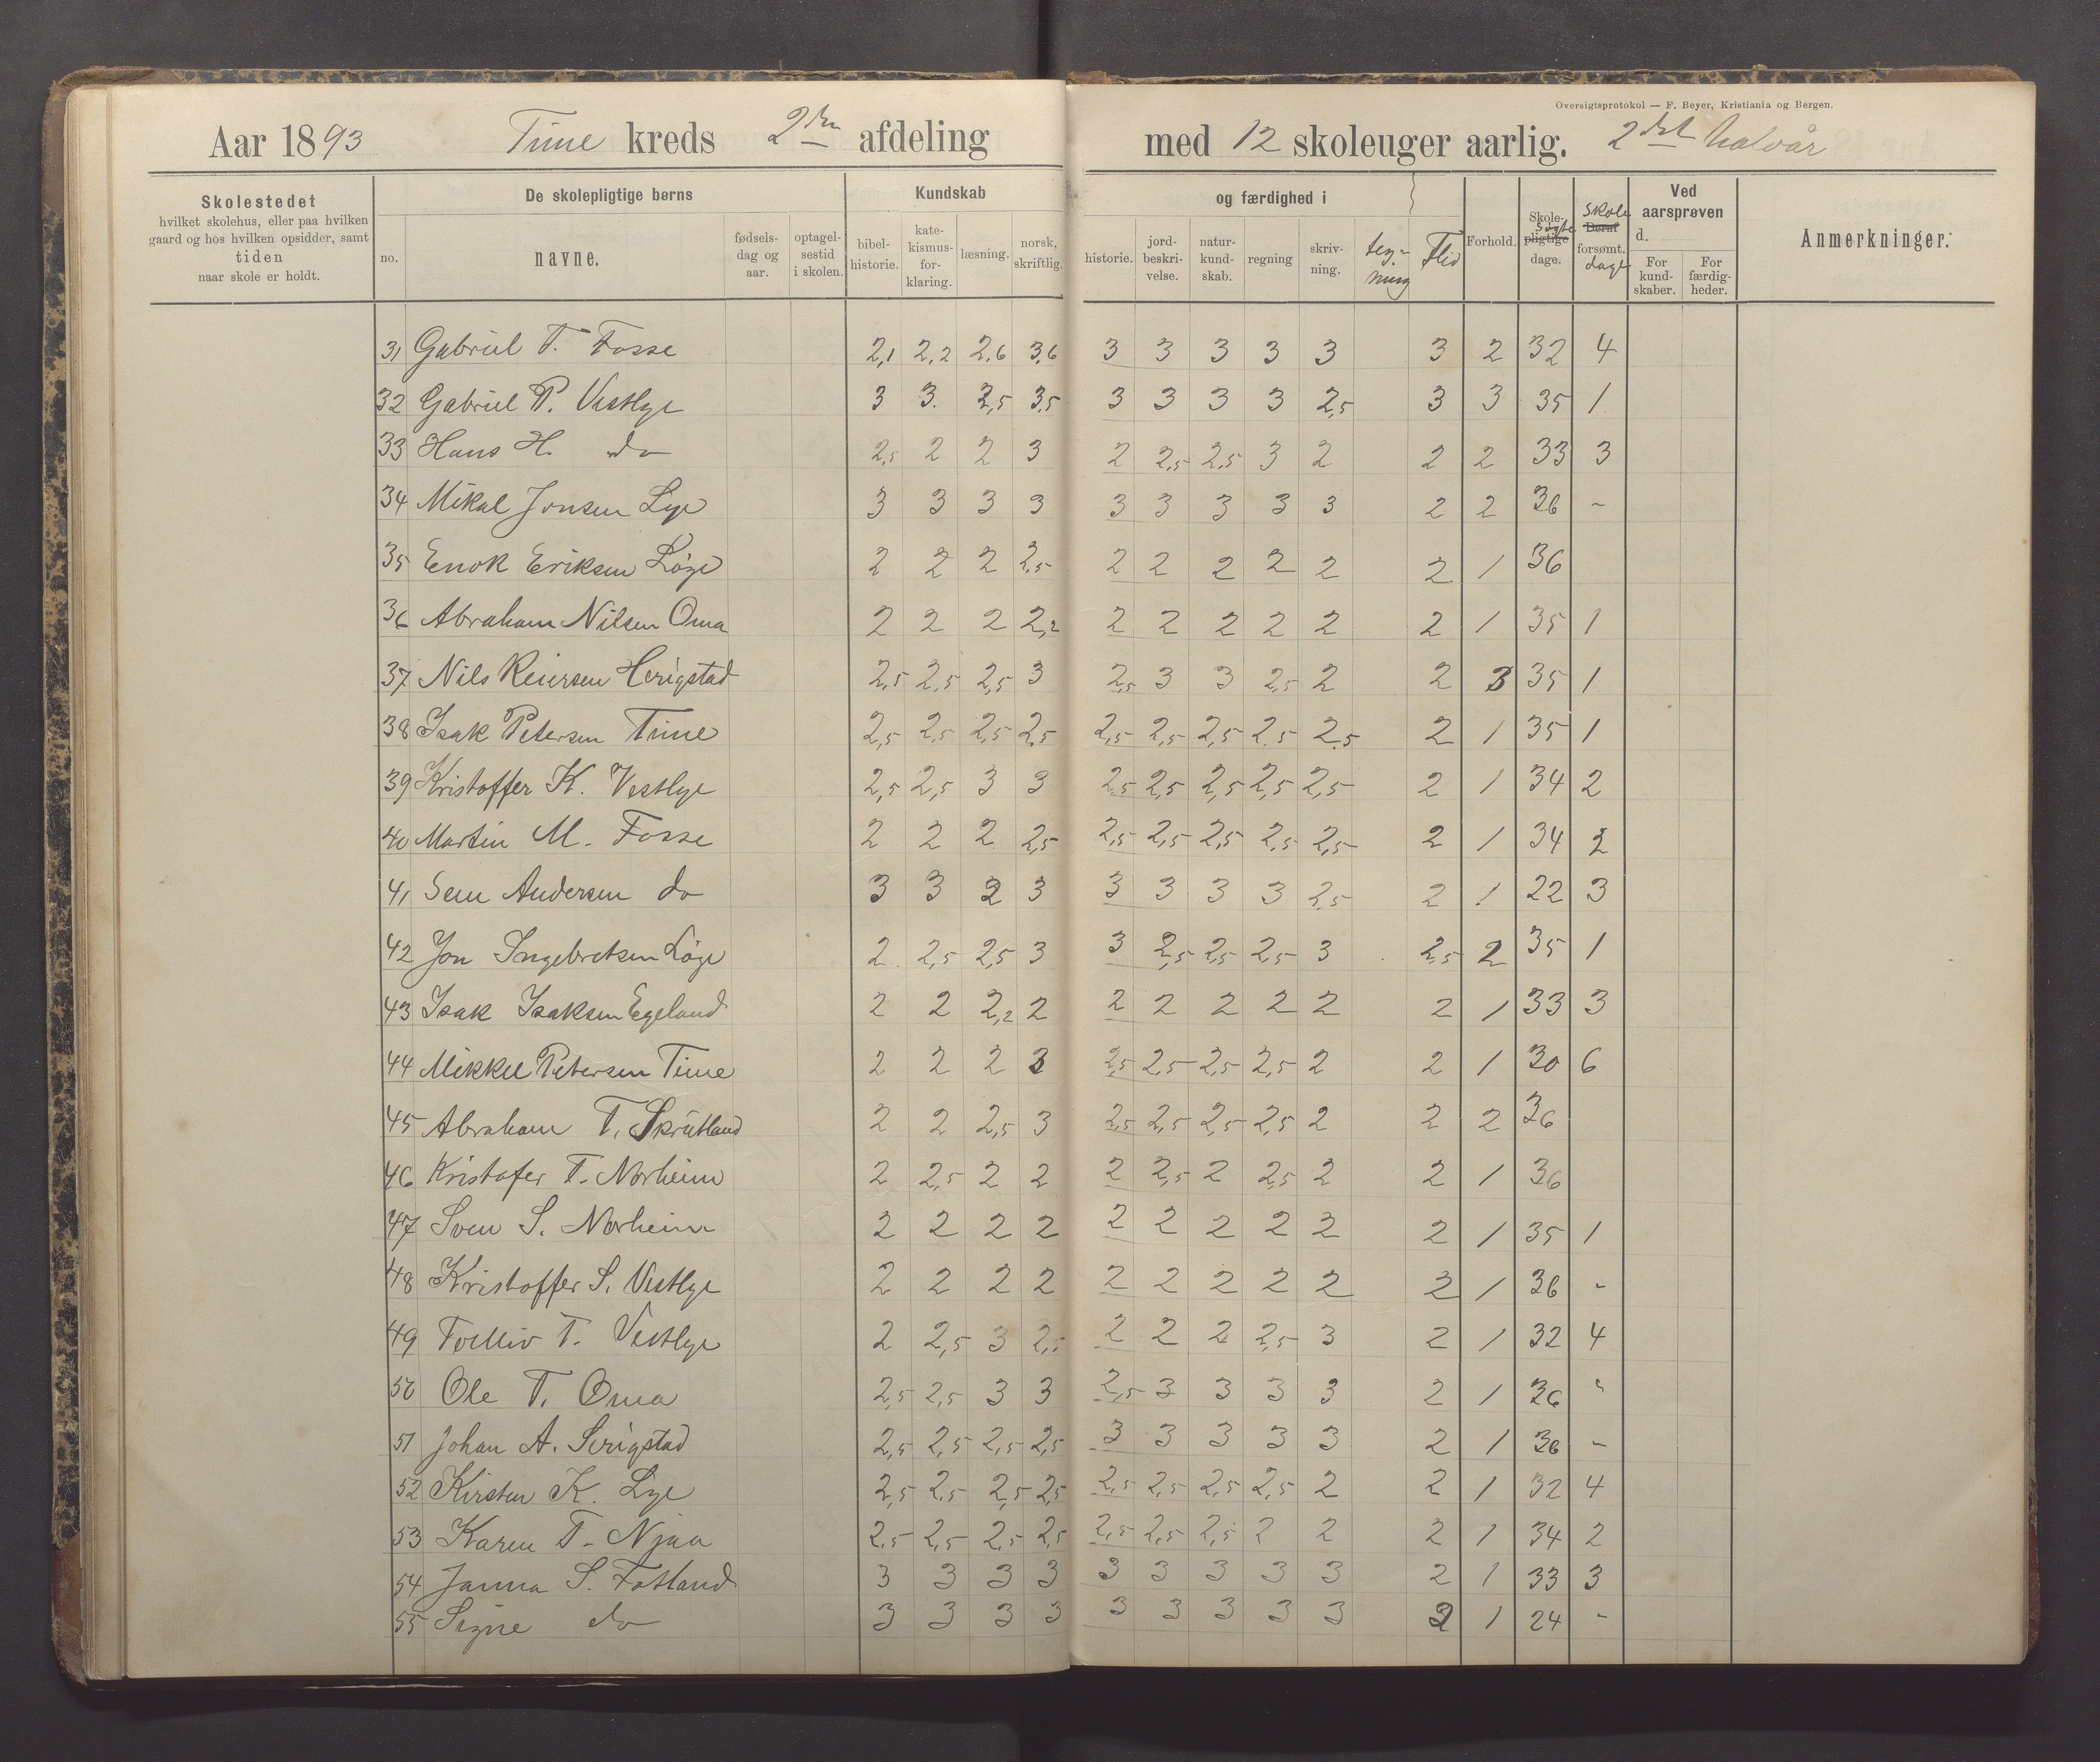 Oversigtsprotokol — F. Beyer, Kristiania og Bergen.
Aar 1893 Time kreds 2den afdeling med 12 skoleuger aarlig. 2det halvår
Skolestedet hvilket skolehus, eller paa hvilken gaard og hos hvilken opsidder, samt tiden naar skole er holdt.
De skolepligtige børns
no. navne. fødselsdag og aar. optagelsestid i skolen.
Kundskab og færdighed i
bibelhistorie. katekismusforklaring. læsning. norsk, skriftlig. historie. jordbeskrivelse. naturkundskab. regning skrivning. tegning Flid Forhold. Skolepligtige søgte dage. Deraf skole forsømt. dage
Ved aarsprøven d. For kundskaber. For færdigheder.
Anmerkninger.
31 Gabriel T. Fosse 2,1 2,2 2,6 3,6 3 3 3 3 3 3 2 32 4
32 Gabriel P. Vestlye 3 3. 2,5 3,5 3 3 3 3 2,5 3 3 35 1
33 Hans H. do 2,5 2 2 3 2 2,5 2,5 3 2 2 2 33 3
34 Mikal Jonsen Lye 3 3 3 3 3 3 3 3 3 2 2 36 -
35 Enok Eriksen Løge 2 2 2 2,5 2 2 2 2 2 2 1 36
36 Abraham Nilsen Oma 2 2 2 2,2 2 2 2 2 2 2 1 35 1
37 Nils Reiersen Herigstad 2,5 2,5 2,5 3 2,5 3 3 2,5 2 2 3 35 1
38 Isak Petersen Time 2,5 2,5 2,5 2,5 2,5 2,5 2,5 2,5 2,5 2 1 35 1
39 Kristoffer K. Vestlye 2,5 2,5 3 3 2,5 2,5 2,5 2,5 2,5 2 1 34 2
40 Martin M. Fosse 2 2 2 2,5 2,5 2,5 2,5 2,5 2,5 2 1 34 2
41 Sem Andersen do 3 3 2 3 3 3 3 3 2,5 2 1 22 3
42 Jon Ingebretsen Løge 2 2,5 2,5 3 3 2,5 2,5 2,5 3 2,5 2 35 1
43 Isak Isaksen Egeland 2 2 2,2 2 2 2 2 2 2 2 1 33 3
44 Mikkel Petersen Time 2 2 2 3 2,5 2,5 2,5 2,5 2 2 1 30 6
45 Abraham T. Skrutland 2 2 2,5 3 2,5 2,5 2,5 2,5 2 2 2 36
46 Kristofer T. Norheim 2 2,5 2 2 2 2,5 2 2,5 2 2 1 36
47 Sven S. Norheim 2 2 2 2 2 2 2 2 2 2 1 35 1
48 Kristoffer S. Vestlye 2 2 2 2 2 2 2 2 2 2 1 36 -
49 Tolliv T. Vestlye 2 2,5 3 2,5 2 2 2 2,5 3 2 1 32 4
50 Ole T. Oma 2,5 2,5 3 3 2,5 3 3 3 3 2 1 36 -
51 Johan A. Serigstad 2,5 2,5 2,5 2,5 3 3 3 3 3 2 1 36 -
52 Kirsten K. Lye 2,5 2,5 2,5 2,5 2,5 2,5 2,5 2,5 2 2 1 32 4
53 Karen T. Njaa 2,5 2,5 2,5 2,5 2,5 2,5 2,5 2 2 2 1 34 2
54 Janna S. Fotland 3 3 3 3 3 3 3 3 3 2 1 33 3
55 Signe do 3 3 3 3 3 3 3 3 3 2 1 24 -